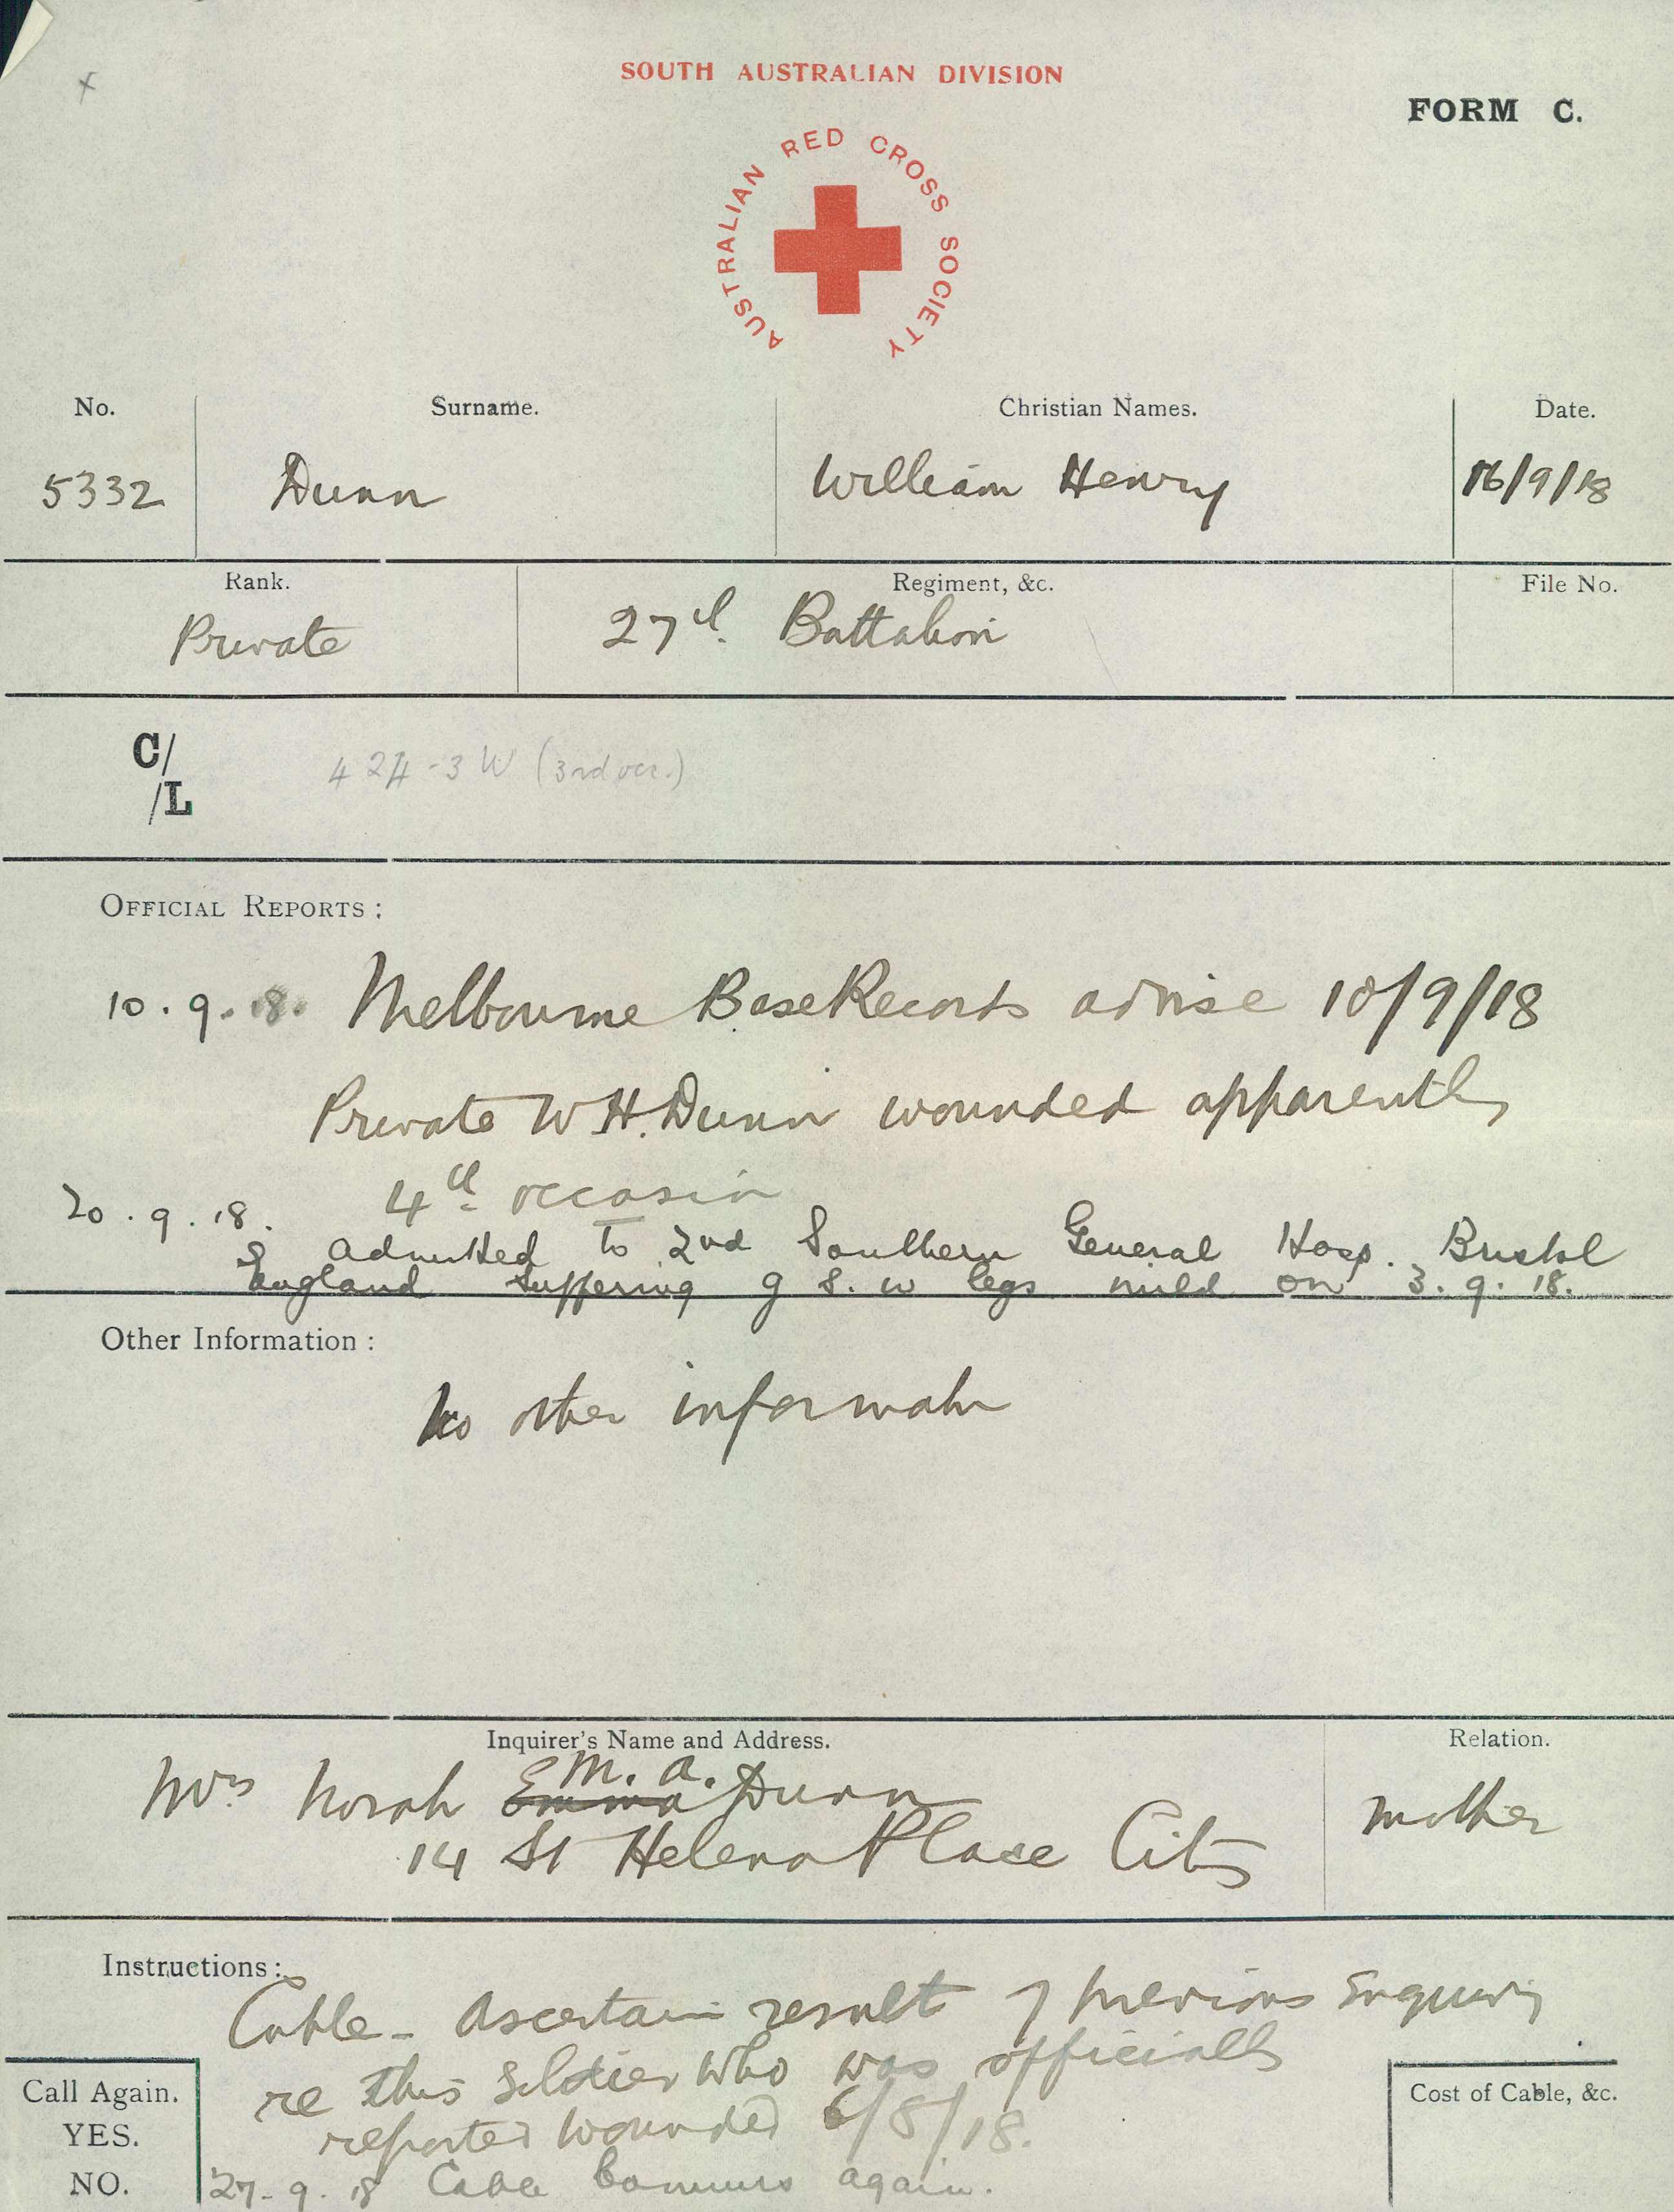 SOUTH AUSTRALIAN DIVISION
FORM C.
AUSTRALIAN RED CROSS SOCIETY
No. Surname. Christian Names. Date.
5332 Dunn William Henry 16/9/18
Rank. Regiment, &c. File No.
Private 27th Battalion
C/
/L
424-3 W (3rd occ.)
OFFICIAL REPORTS:
10.9.18. Melbourne Base Records advise 10/9/18
Private W H. Dunn wounded apparently
4th occasion
20.9.18.
admitted to 2nd Southern General Hosp. Bristol
England suffering g s. w legs mild on 3.9.18.
Other Information:
No other informatn
Inquirer's Name and Address. Relation.
M. A.
Mrs Norah Emma Dunn mother
14 St Helena Place City
Instructions:
Cable - Ascertain result of previous enquiry
re this soldier who was officially
reported wounded 6/8/18.
27-9.18 Cable again.
Call Again.
YES.
NO.
Cost of Cable, &c.